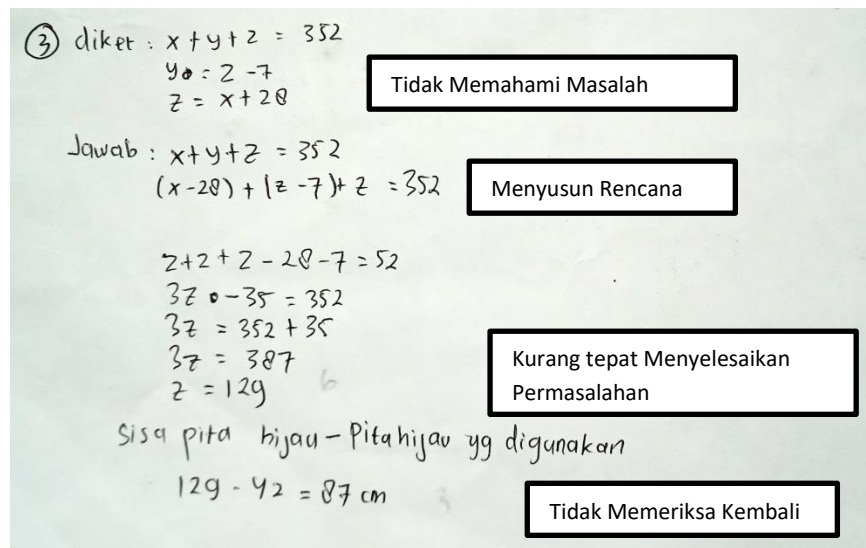 ③ diket : x + y + z = 352
y = z - 7
z = x + 28
Tidak Memahami Masalah
Jawab : x + y + z = 352
(x - 28) + (z - 7) + z = 352
Menyusun Rencana
z + z + z - 28 - 7 = 52
3z - 35 = 352
3z = 352 + 35
3z = 387
z = 129
Kurang tepat Menyelesaikan
Permasalahan
Sisa pita hijau - Pita hijau yg digunakan
129 - 42 = 87 cm
Tidak Memeriksa Kembali